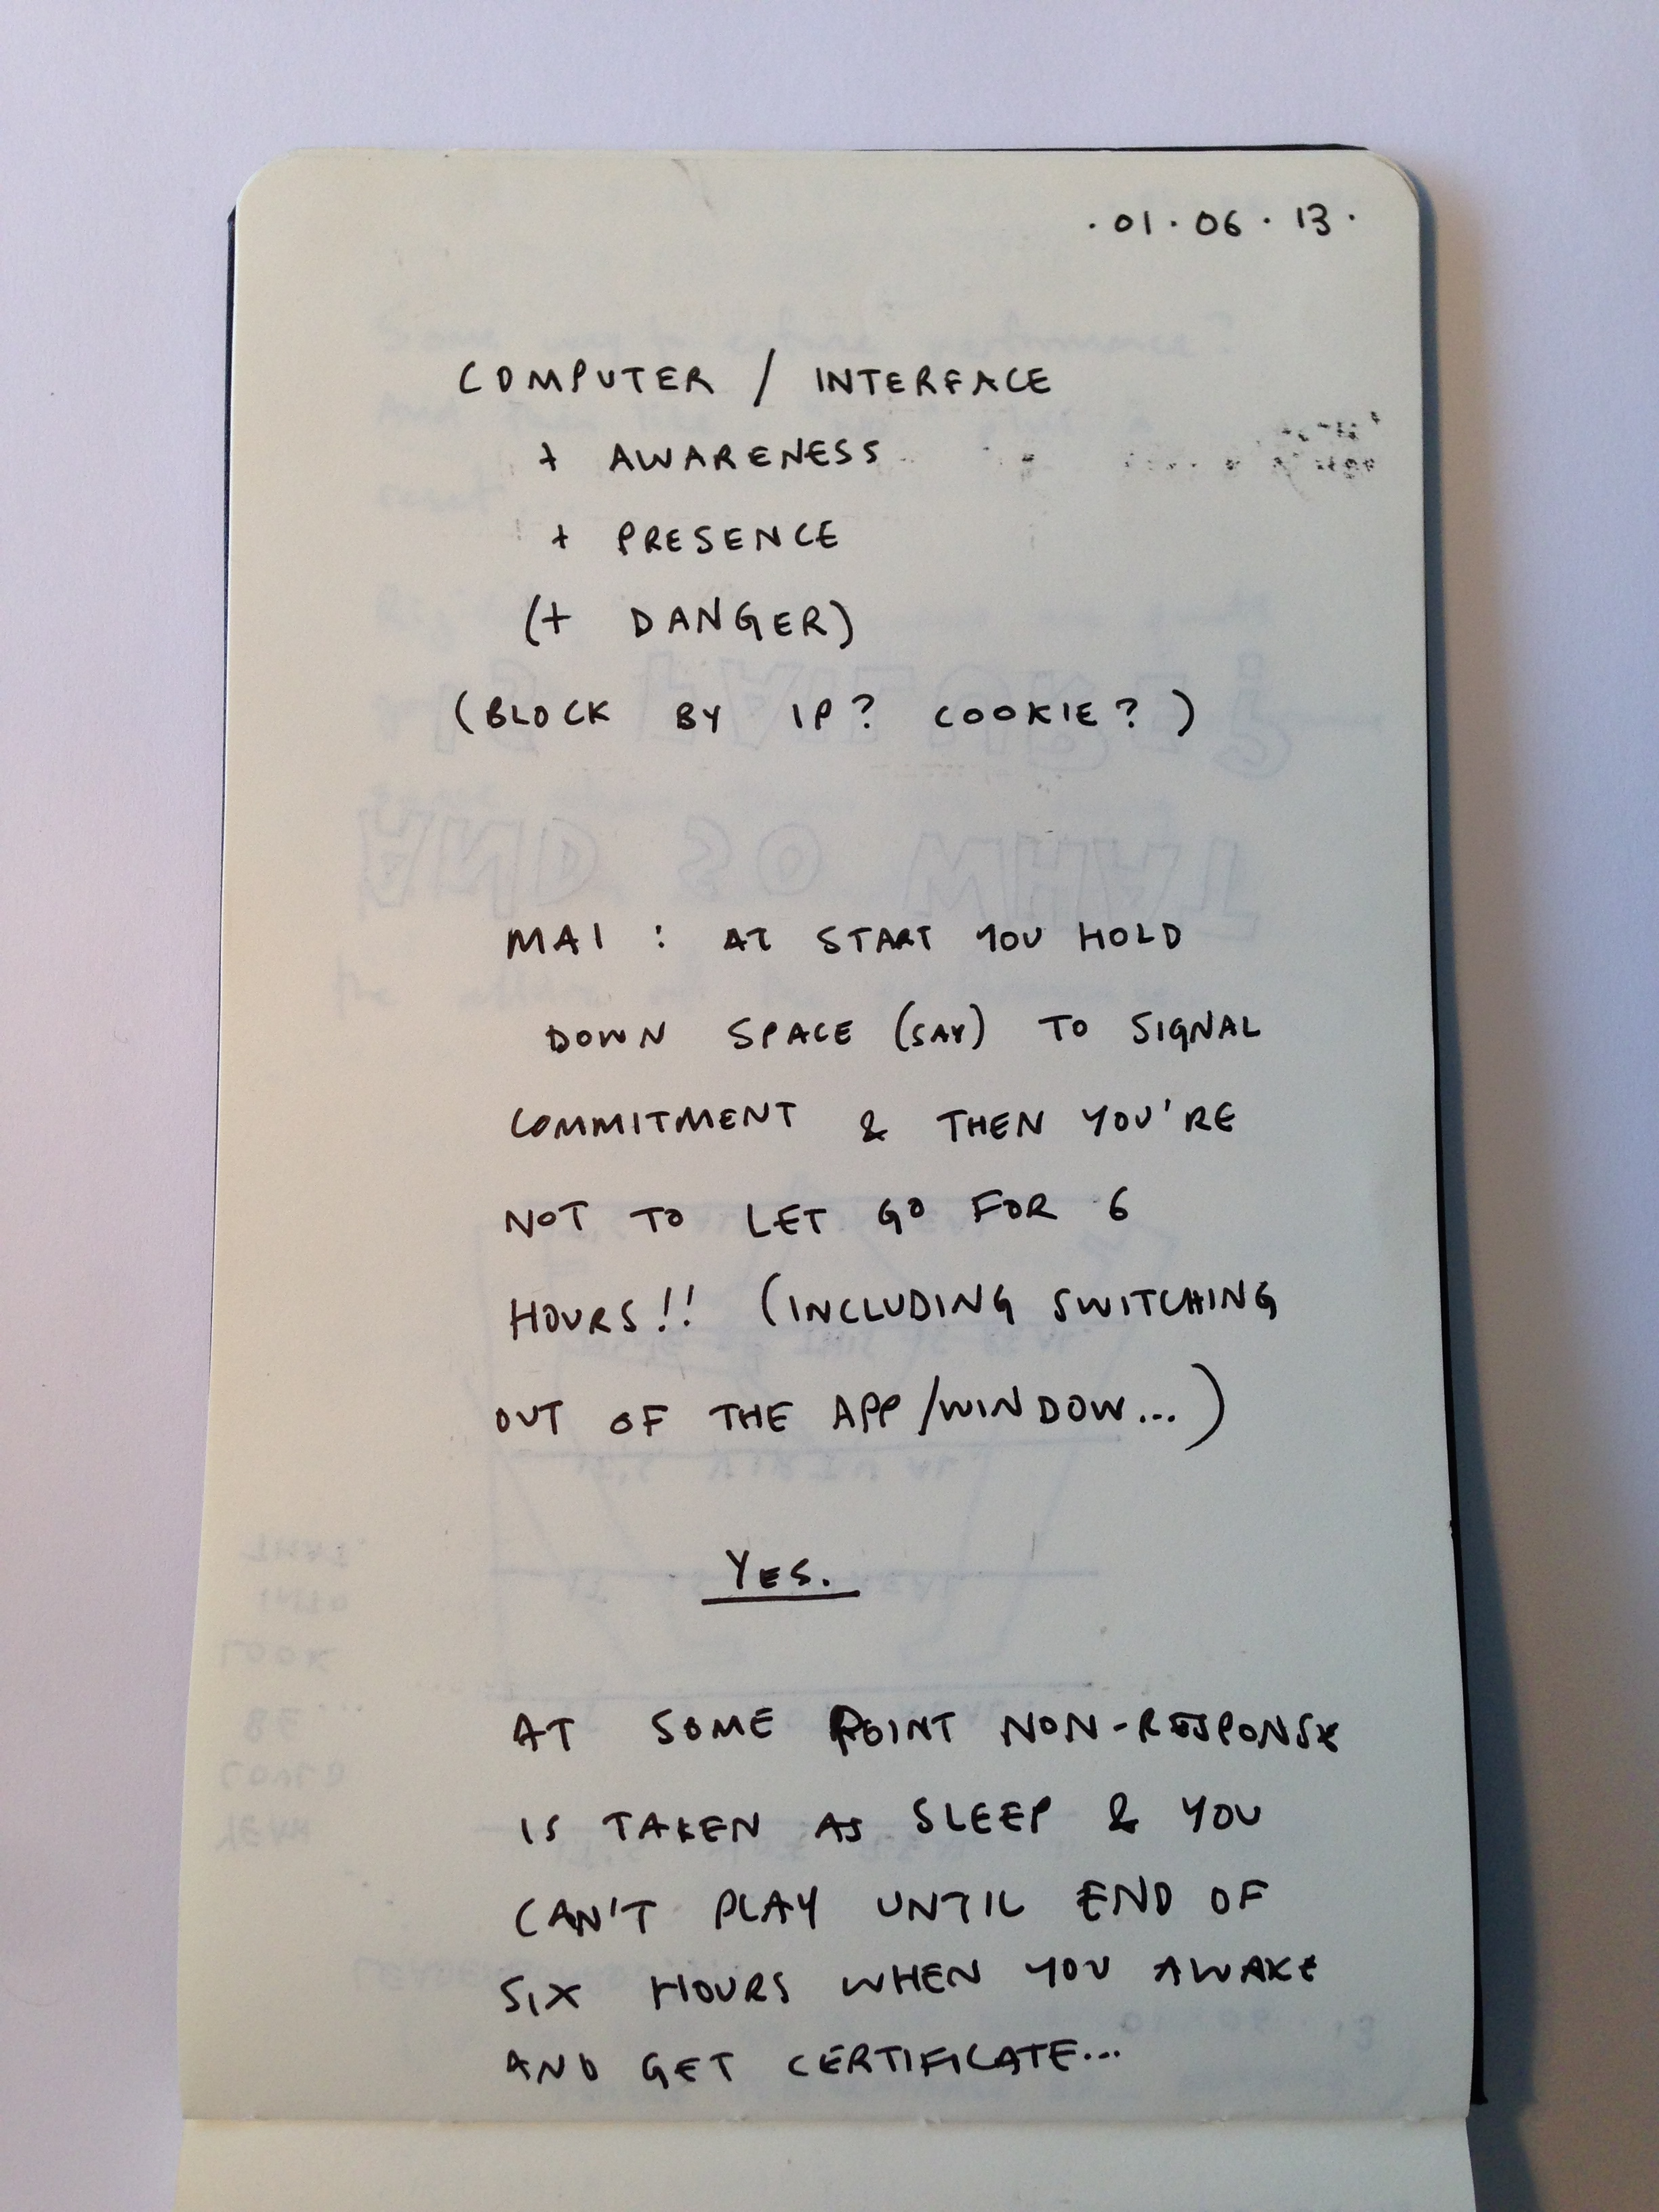 . 01 . 06 . 13 .
COMPUTER / INTERFACE
+ AWARENESS
+ PRESENCE
(+ DANGER)
(BLOCK BY IP? COOKIE?)
MAI : AT START YOU HOLD
DOWN SPACE (SAY) TO SIGNAL
COMMITMENT & THEN YOU'RE
NOT TO LET GO FOR 6
HOURS!! (INCLUDING SWITCHING
OUT OF THE APP/WINDOW...)
YES.
AT SOME POINT NON-RESPONSE
IS TAKEN AS SLEEP & YOU
CAN'T PLAY UNTIL END OF
SIX HOURS WHEN YOU AWAKE
AND GET CERTIFICATE...